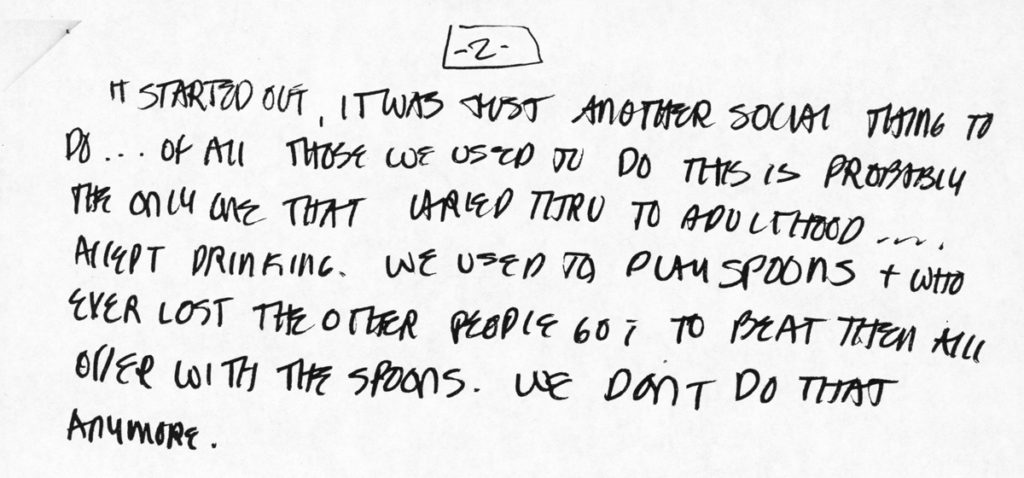 -2-
IT STARTED OUT, IT WAS JUST ANOTHER SOCIAL THING TO
DO... OF ALL THOSE WE USED TO DO THIS IS PROBABLY
THE ONLY ONE THAT CARRIED THRU TO ADULTHOOD ....
ACCEPT DRINKING. WE USED TO PLAY SPOONS + WHO
EVER LOST THE OTHER PEOPLE GOT TO BEAT THEM ALL
OVER WITH THE SPOONS. WE DON'T DO THAT
ANYMORE.